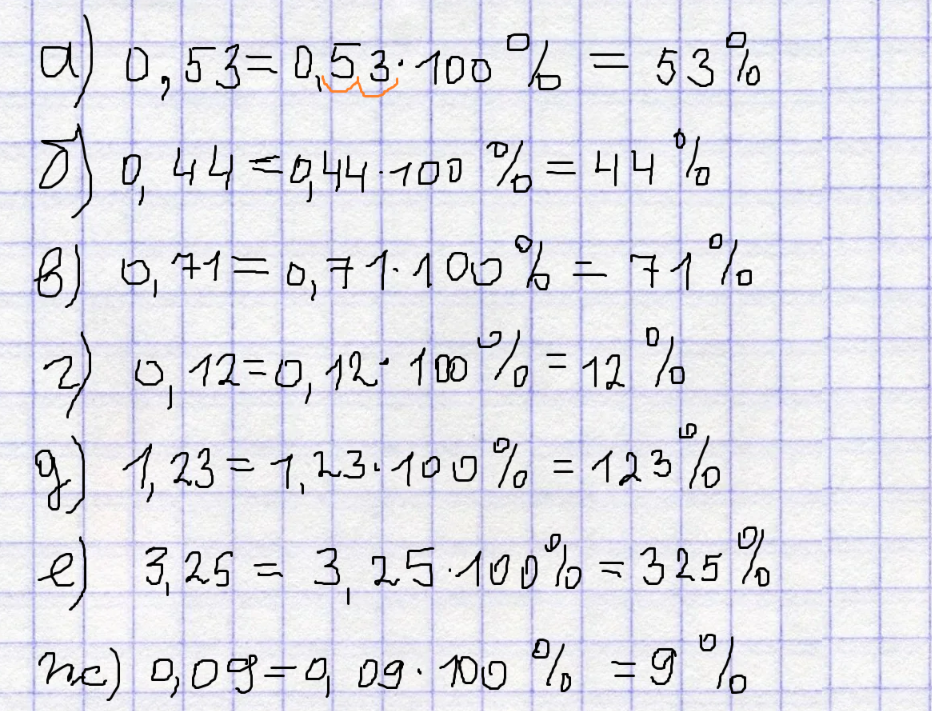 а) 0,53=0,53·100% = 53%
б) 0,44=0,44·100%=44%
в) 0,71=0,71·100%=71%
г) 0,12=0,12·100%=12%
д) 1,23=1,23·100%=123%
е) 3,25=3,25·100%=325%
ж) 0,09=0,09·100%=9%